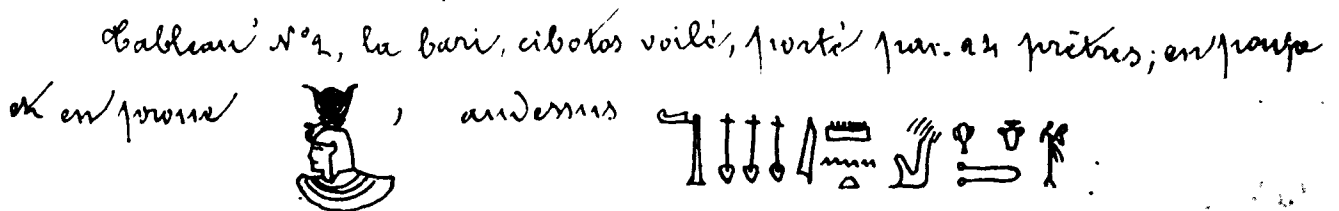 Tableau N°2, la bari, cibotos voilé, porté par. 24 prêtres; en poupe
et en proue , audessus .